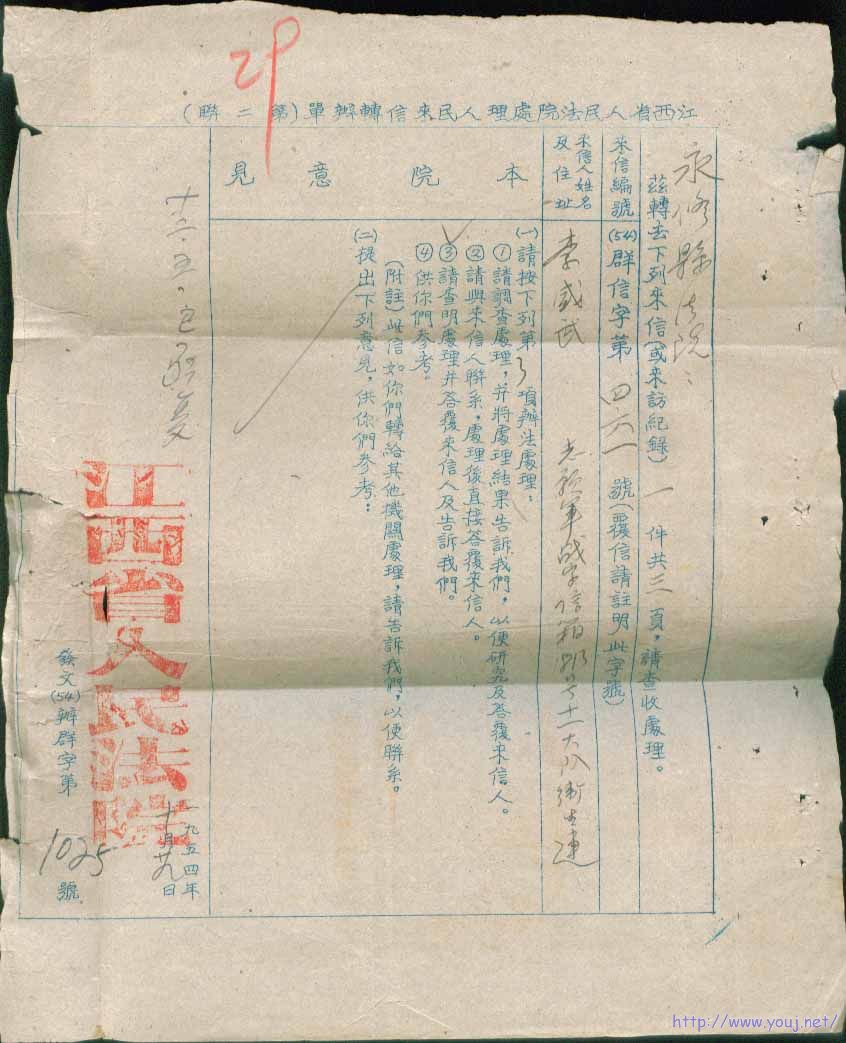 29
江西省人民法院處理人民來信轉辦單(第二聯)
永修縣法院：
茲轉去下列來信(或來訪紀錄)一件共三頁，請查收處理。
來信編號
(54)群信字第四六一號(覆信請註明此字號)
來信人姓名及住址
李威武 志願軍 信箱 十一大队衛生連
本院意見
(一)請按下列第3項辦法處理：
①請調查處理，并將處理結果告訴我們，以便研究及答覆來信人。
②請與來信人聯系，處理後直接答覆來信人。
③請查明處理并答覆來信人及告訴我們。
④供你們參考。
(附註)此信如你們轉給其他機關處理，請告訴我們，以便聯系。
(二)提出下列意見，供你們參考：
十二.五.已 复
江西省人民法院
一九五四年十月廿九日
發文(54)辦群字第1025號
http://www.youj.net/